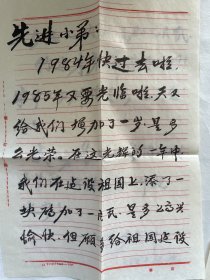 先进小弟：
1984年快过去啦，
1985年又要光临啦，天又
给我们增加了一岁，是多
么光荣。在这光辉的一年中
我们在建设祖国上，添了一
块砖加了一片瓦，是多么高兴
愉快，但愿多给祖国建设